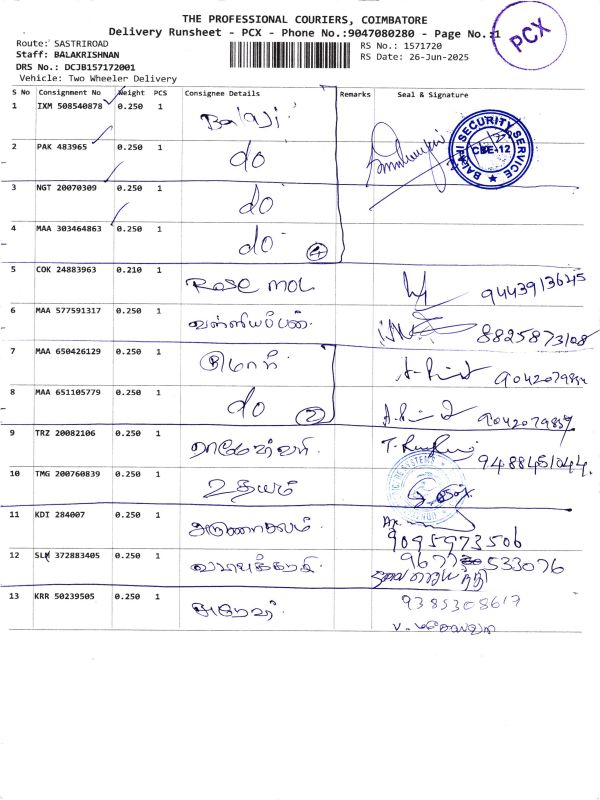 THE PROFESSIONAL COURIERS, COIMBATORE
Delivery Runsheet - PCX - Phone No.:9047080280 - Page No.:1
PCX
Route: SASTRIROAD
RS No.: 1571720
Staff: BALAKRISHNAN
RS Date: 26-Jun-2025
DRS No.: DCJB157172001
Vehicle: Two Wheeler Delivery
S No Consignment No Weight PCS Consignee Details Remarks Seal & Signature
1 IXM 508540878 0.250 1 Balaji
BALAJI SECURITY SERVICE CBE-12
2 PAK 483965 0.250 1 do
3 NGT 20070309 0.250 1 do
4 MAA 303464863 0.250 1 do 4
5 COK 24883963 0.210 1 Rose mol 9443913645
6 MAA 577591317 0.250 1 வள்ளியப்பன். 8825873108
7 MAA 650426129 0.250 1
8 MAA 651105779 0.250 1 do 2
9 TRZ 20082106 0.250 1 ராமேஸ்வரி. 9488451044.
10 TMG 200760839 0.250 1 உதயம்
11 KDI 284007 0.250 1 அருணாசலம். 9095973506
12 SLM 372883405 0.250 1 533076
13 KRR 50239505 0.250 1 9385308617